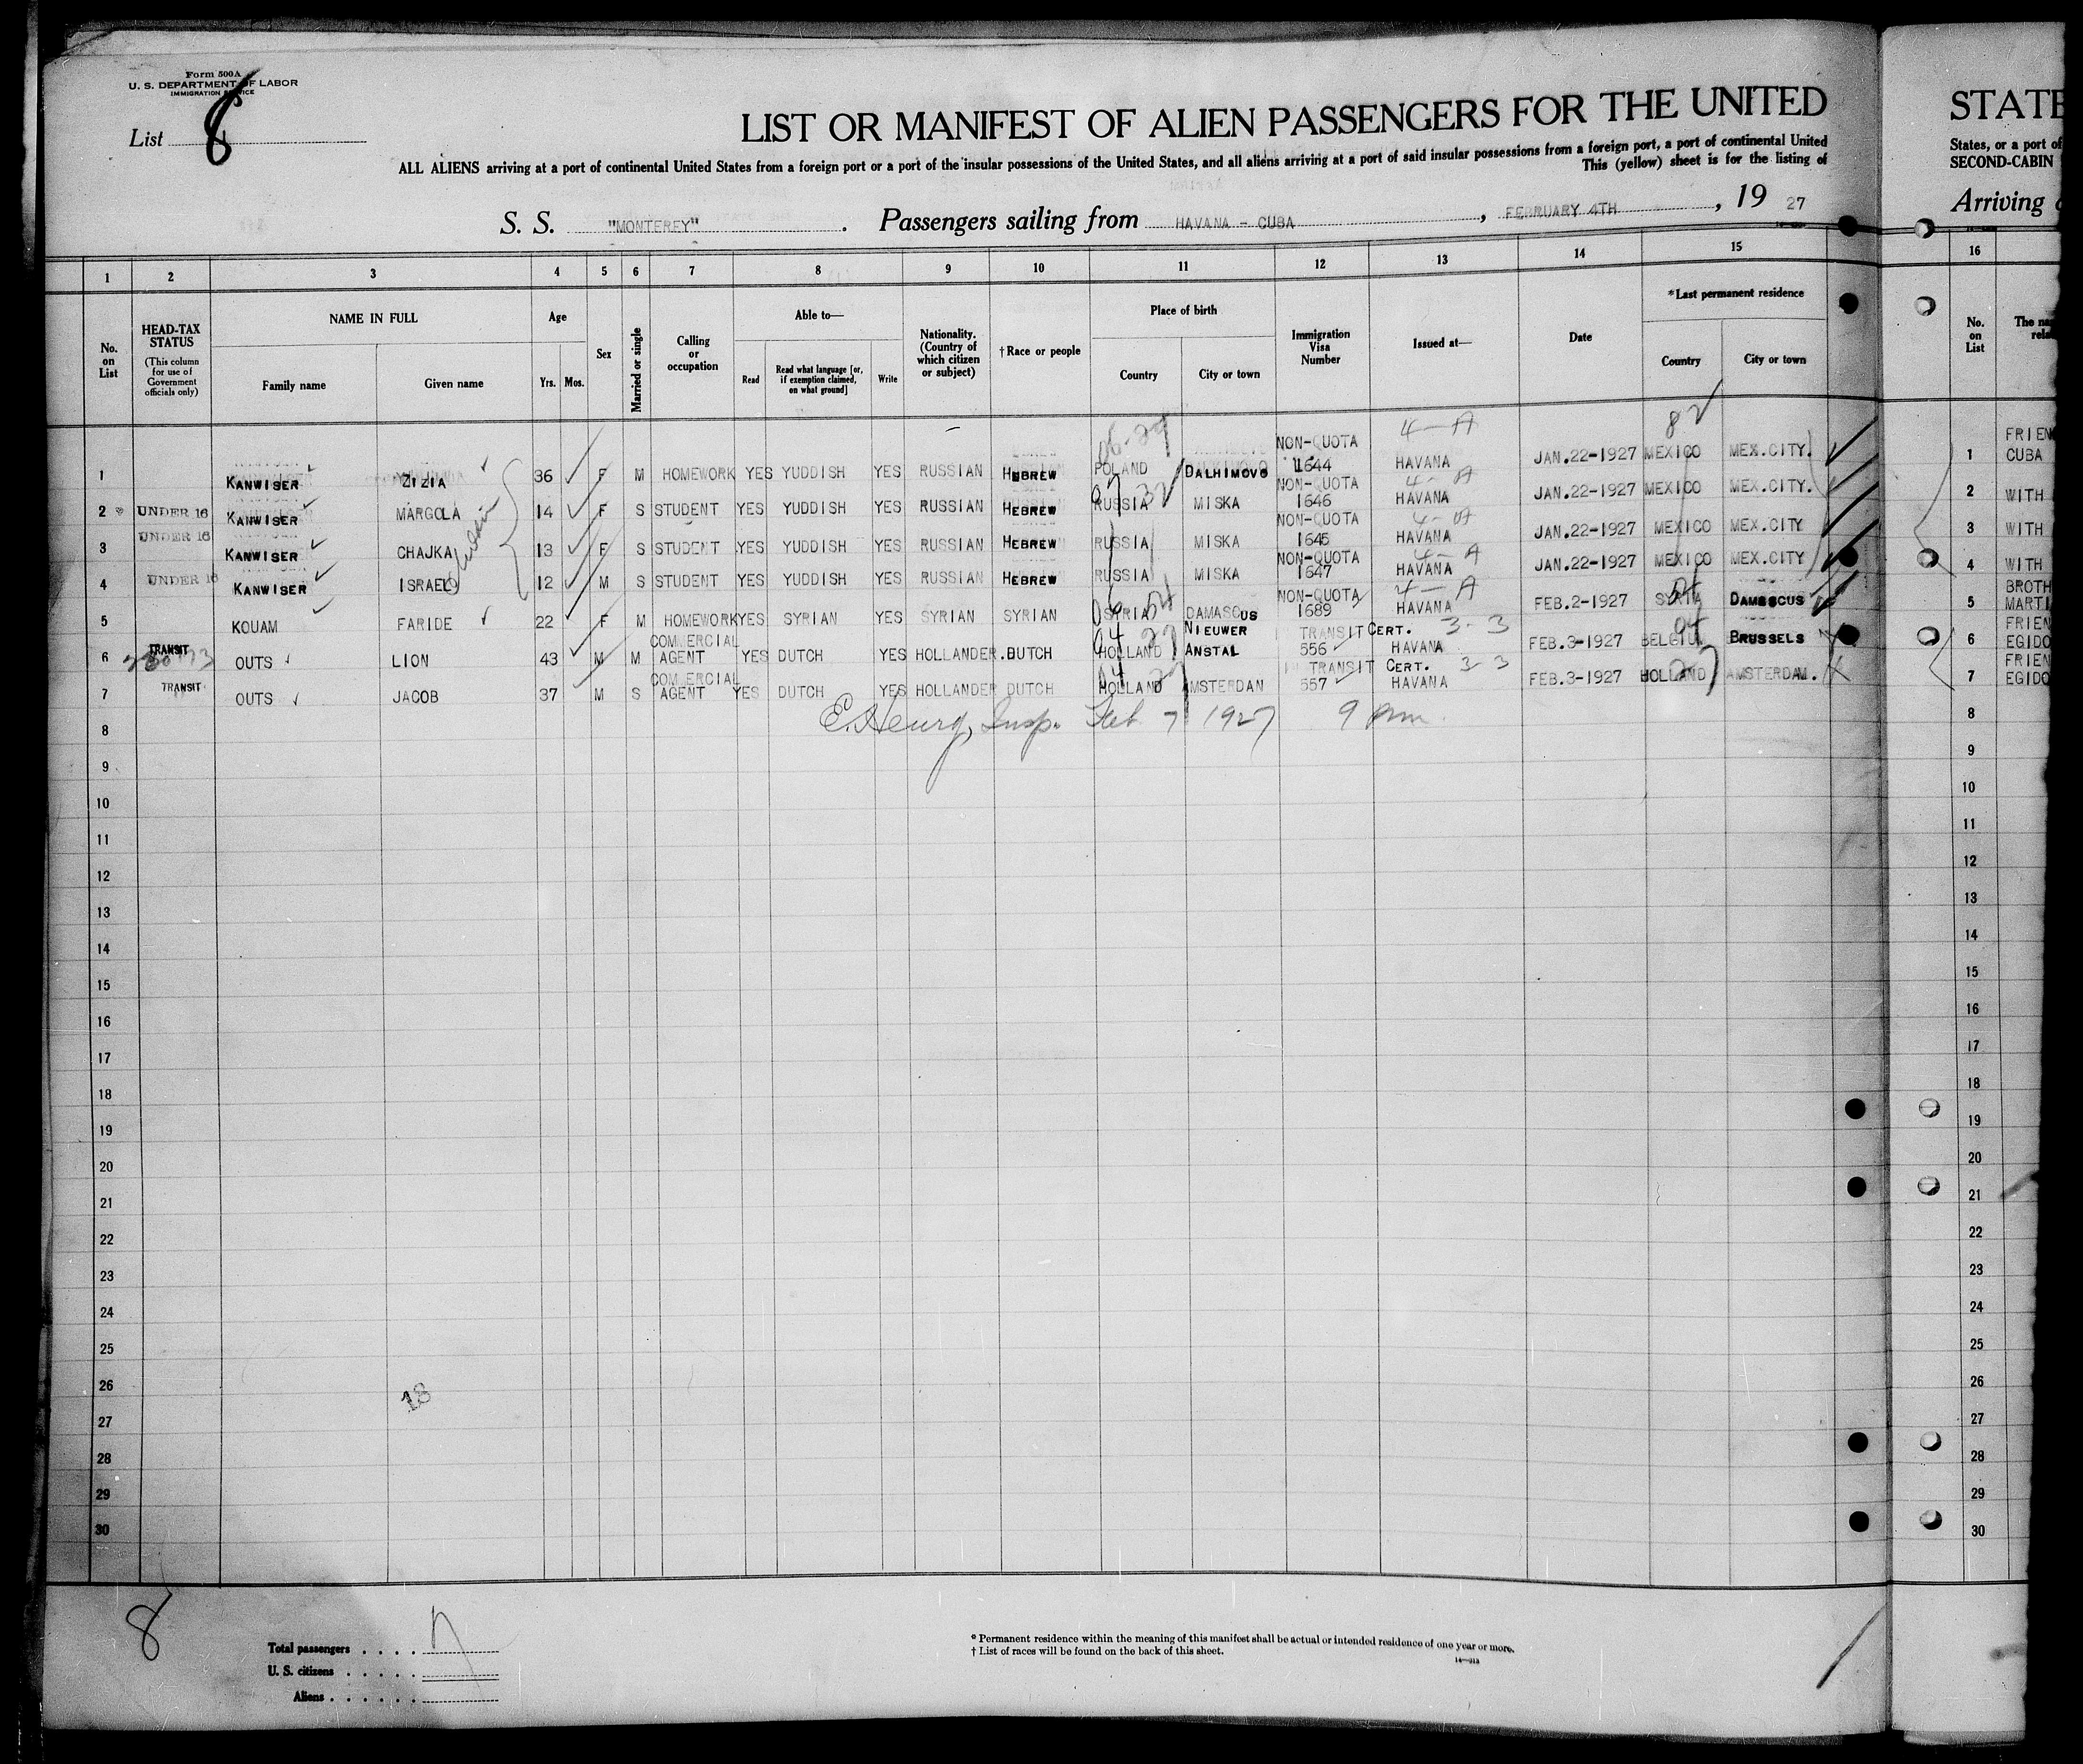 Form 500A
U. S. DEPARTMENT OF LABOR
IMMIGRATION SERVICE
List 8
LIST OR MANIFEST OF ALIEN PASSENGERS FOR THE UNITED
ALL ALIENS arriving at a port of continental United States from a foreign port or a port of the insular possessions of the United States, and all aliens arriving at a port of said insular possessions from a foreign port, a port of continental United
This (yellow) sheet is for the listing of
S. S. "MONTEREY". Passengers sailing from HAVANA - CUBA, FEBRUARY 4TH, 19 27
STATE
States, or a port of
SECOND-CABIN
Arriving
1 2 3 4 5 6 7 8 9 10 11 12 13 14 15 16
No. on List
HEAD-TAX STATUS
(This column for use of Government officials only)
NAME IN FULL
Family name Given name
Age
Yrs. Mos.
Sex
Married or single
Calling or occupation
Able to—
Read Read what language [or, if exemption claimed, on what ground] Write
Nationality. (Country of which citizen or subject)
†Race or people
Place of birth
Country City or town
Immigration Visa Number
Issued at—
Date
*Last permanent residence
Country City or town
No. on List
82
06-29 NON-QUOTA 4-A
1 KANWISER ZIZIA 36 F M HOMEWORK YES YUDDISH YES RUSSIAN HEBREW POLAND DALHIMOVO 1644 HAVANA JAN.22-1927 MEXICO MEX.CITY. 1 FRIEN CUBA
NON-QUOTA 4-A
2 UNDER 16 KANWISER MARGOLA 14 F S STUDENT YES YUDDISH YES RUSSIAN HEBREW RUSSIA MISKA 1646 HAVANA JAN.22-1927 MEXICO MEX.CITY. 2 WITH
NON-QUOTA 4-A
3 UNDER 16 KANWISER CHAJKA 13 F S STUDENT YES YUDDISH YES RUSSIAN HEBREW RUSSIA MISKA 1645 HAVANA JAN.22-1927 MEXICO MEX.CITY 3 WITH
NON-QUOTA 4-A
4 UNDER 16 KANWISER ISRAEL 12 M S STUDENT YES YUDDISH YES RUSSIAN HEBREW RUSSIA MISKA 1647 HAVANA JAN.22-1927 MEXICO MEX.CITY 4 WITH
NON-QUOTA 4-A
5 KOUAM FARIDE 22 F M HOMEWORK YES SYRIAN YES SYRIAN SYRIAN SYRIA DAMASCUS 1689 HAVANA FEB.2-1927 SYRIA DAMASCUS 5 BROTH MARTI
6 TRANSIT OUTS LION 43 M M COMMERCIAL AGENT YES DUTCH YES HOLLANDER.DUTCH HOLLAND NIEUWER ANSTAL TRANSIT CERT. 3-3 556 HAVANA FEB.3-1927 BELGIUM BRUSSELS 6 FRIEN EGIDO
7 TRANSIT OUTS JACOB 37 M S COMMERCIAL AGENT YES DUTCH YES HOLLANDER DUTCH HOLLAND AMSTERDAN TRANSIT CERT. 3-3 557 HAVANA FEB.3-1927 HOLLAND AMSTERDAM. 7 FRIEN EGIDO
8 Insp. Feb 7 1927 9 Pm. 8
9 9
10 10
11 11
12 12
13 13
14 14
15 15
16 16
17 17
18 18
19 19
20 20
21 21
22 22
23 23
24 24
25 25
26 18 26
27 27
28 28
29 29
30 30
8
Total passengers . . . . 7
U. S. citizens . . . . .
Aliens . . . . . .
* Permanent residence within the meaning of this manifest shall be actual or intended residence of one year or more.
† List of races will be found on the back of this sheet.